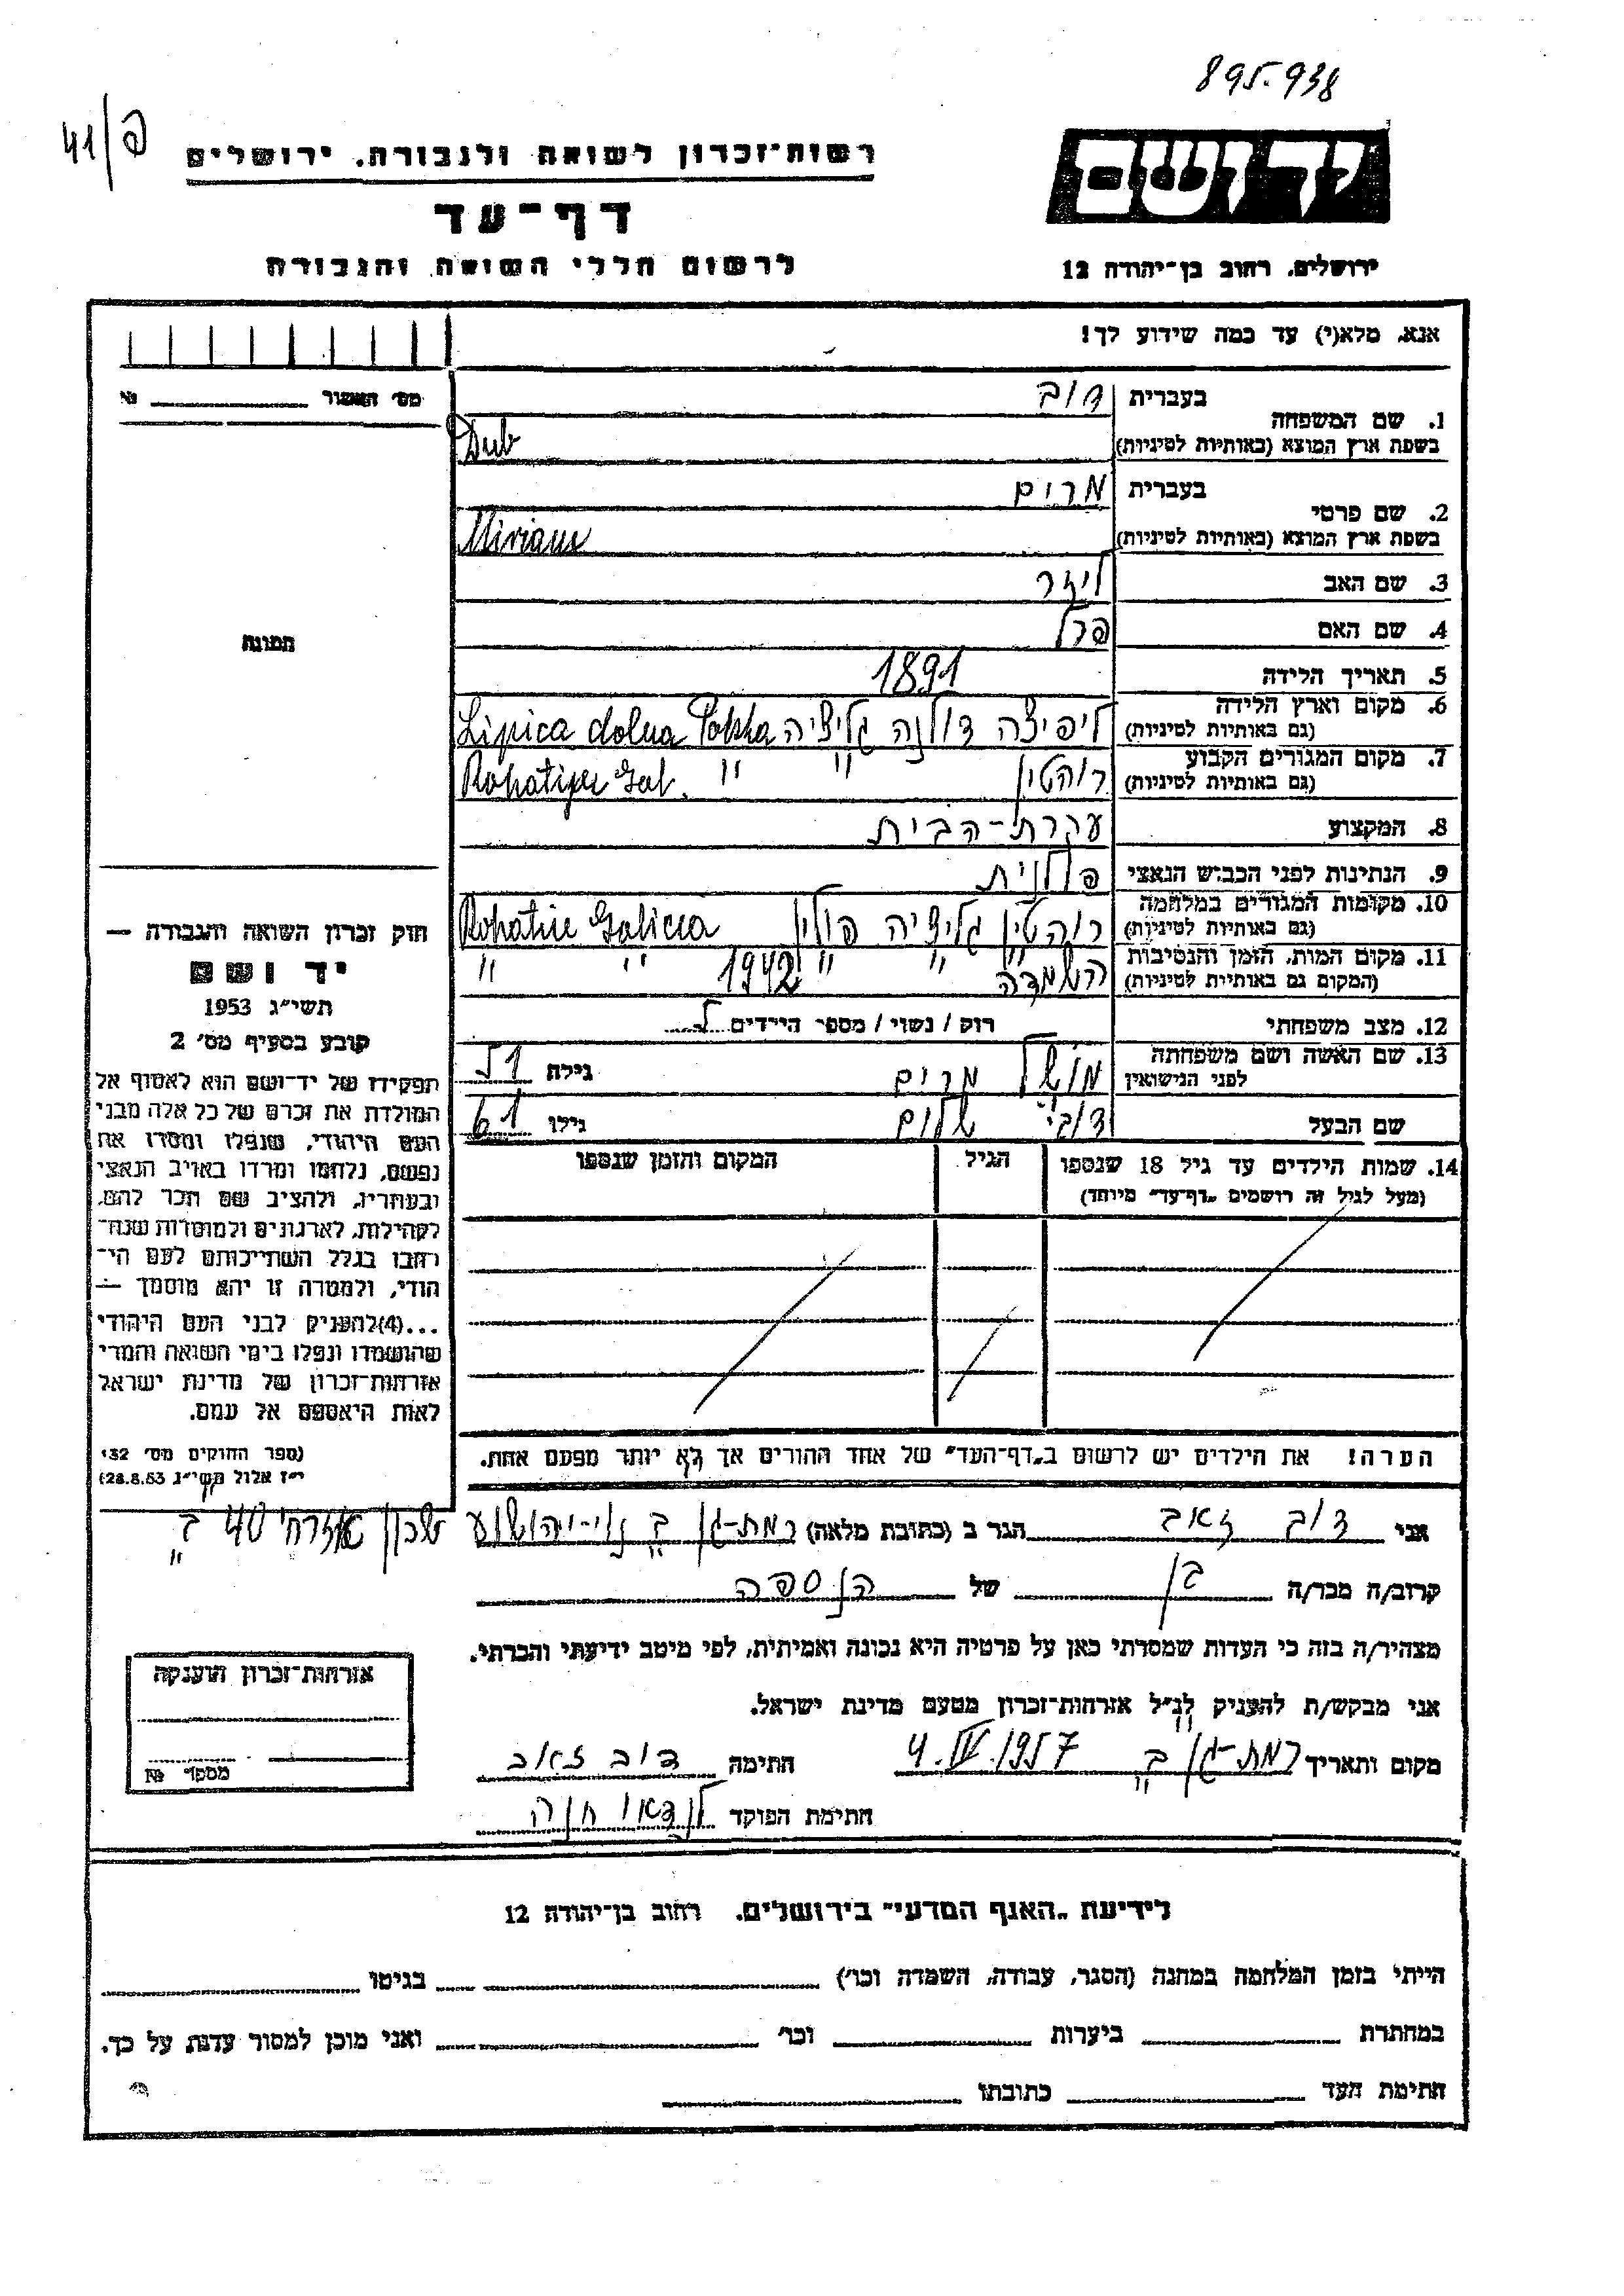 895.938
41/פ
רשות־זכרון לשואה ולגבורה, ירושלים
דף־עד
לרשום חללי השואה והגבורה
יד ושם
ירושלים, רחוב בן־יהודה 12
אנא, מלא(י) עד כמה שידוע לך!
מס' האשור № 
1. שם המשפחה
בעברית דוב
בשפת ארץ המוצא (באותיות לטיניות) Dub
2. שם פרטי
בעברית מרים
בשפת ארץ המוצא (באותיות לטיניות) Miriam
3. שם האב ליזר
4. שם האם פרל
תמונה
5. תאריך הלידה 1891
6. מקום וארץ הלידה (גם באותיות לטיניות) ליפיצה דולנה גליציה Lipica dolna Polska
7. מקום המגורים הקבוע (גם באותיות לטיניות) רוהטין " " Rohatyn Gal.
8. המקצוע עקרת-הבית
9. הנתינות לפני הכבוש הנאצי פולנית
10. מקומות המגורים במלחמה (גם באותיות לטיניות) רוהטין גליציה פולין Rohatin Galicia
11. מקום המות, הזמן והנסיבות (המקום גם באותיות לטיניות) השמדה " " 1942 " "
12. מצב משפחתי רוק / נשוי / מספר הילדים
13. שם האשה ושם משפחתה לפני הנישואין מרים גילה 51
שם הבעל דוב שלום גילו 61
14. שמות הילדים עד גיל 18 שנספו
(מעל לגיל זה רושמים „דף־עד" מיוחד)
הגיל
המקום והזמן שנספו
הערה! את הילדים יש לרשום ב„דף־העד" של אחד ההורים אך לא יותר מפעם אחת.
חוק זכרון השואה והגבורה —
יד ושם
תשי"ג 1953
קובע בסעיף מס' 2
תפקידו של יד־ושם הוא לאסוף אל
המולדת את זכרם של כל אלה מבני
העם היהודי, שנפלו ומסרו את
נפשם, נלחמו ומרדו באויב הנאצי
ובעוזריו, ולהציב שם וזכר להם,
לקהילות, לארגונים ולמוסדות שנח־
רבו בגלל השתייכותם לעם הי־
הודי, ולמטרה זו יהא מוסמך —
...(4)להעניק לבני העם היהודי
שהושמדו ונפלו בימי השואה והמרי
אזרחות־זכרון של מדינת ישראל
לאות היאספם אל עמם.
(ספר החוקים מס' 132,
י"ז אלול תשי"ג 28.8.53)
אני דוב זאב הגר ב (כתובת מלאה) רמת-גן ב' נוי-יהושע שכון אזרחי 40 ב'
קרוב/ה מכר/ה בן של הנספה
מצהיר/ה בזה כי העדות שמסרתי כאן על פרטיה היא נכונה ואמיתית, לפי מיטב ידיעתי והכרתי.
אני מבקש/ת להעניק לנ"ל אזרחות־זכרון מטעם מדינת ישראל.
מקום ותאריך רמת-גן ב' 4.IV.1957 חתימה דוב זאב
חתימת הפוקד לנדאו חנה
אזרחות־זכרון הוענקה
מספר №
לידיעת „האגף המדעי" בירושלים, רחוב בן־יהודה 12
הייתי בזמן המלחמה במחנה (הסגר, עבודה, השמדה וכו') בגיטו
במחתרת ביערות וכו' ואני מוכן למסור עדות על כך.
חתימת העד כתובתו